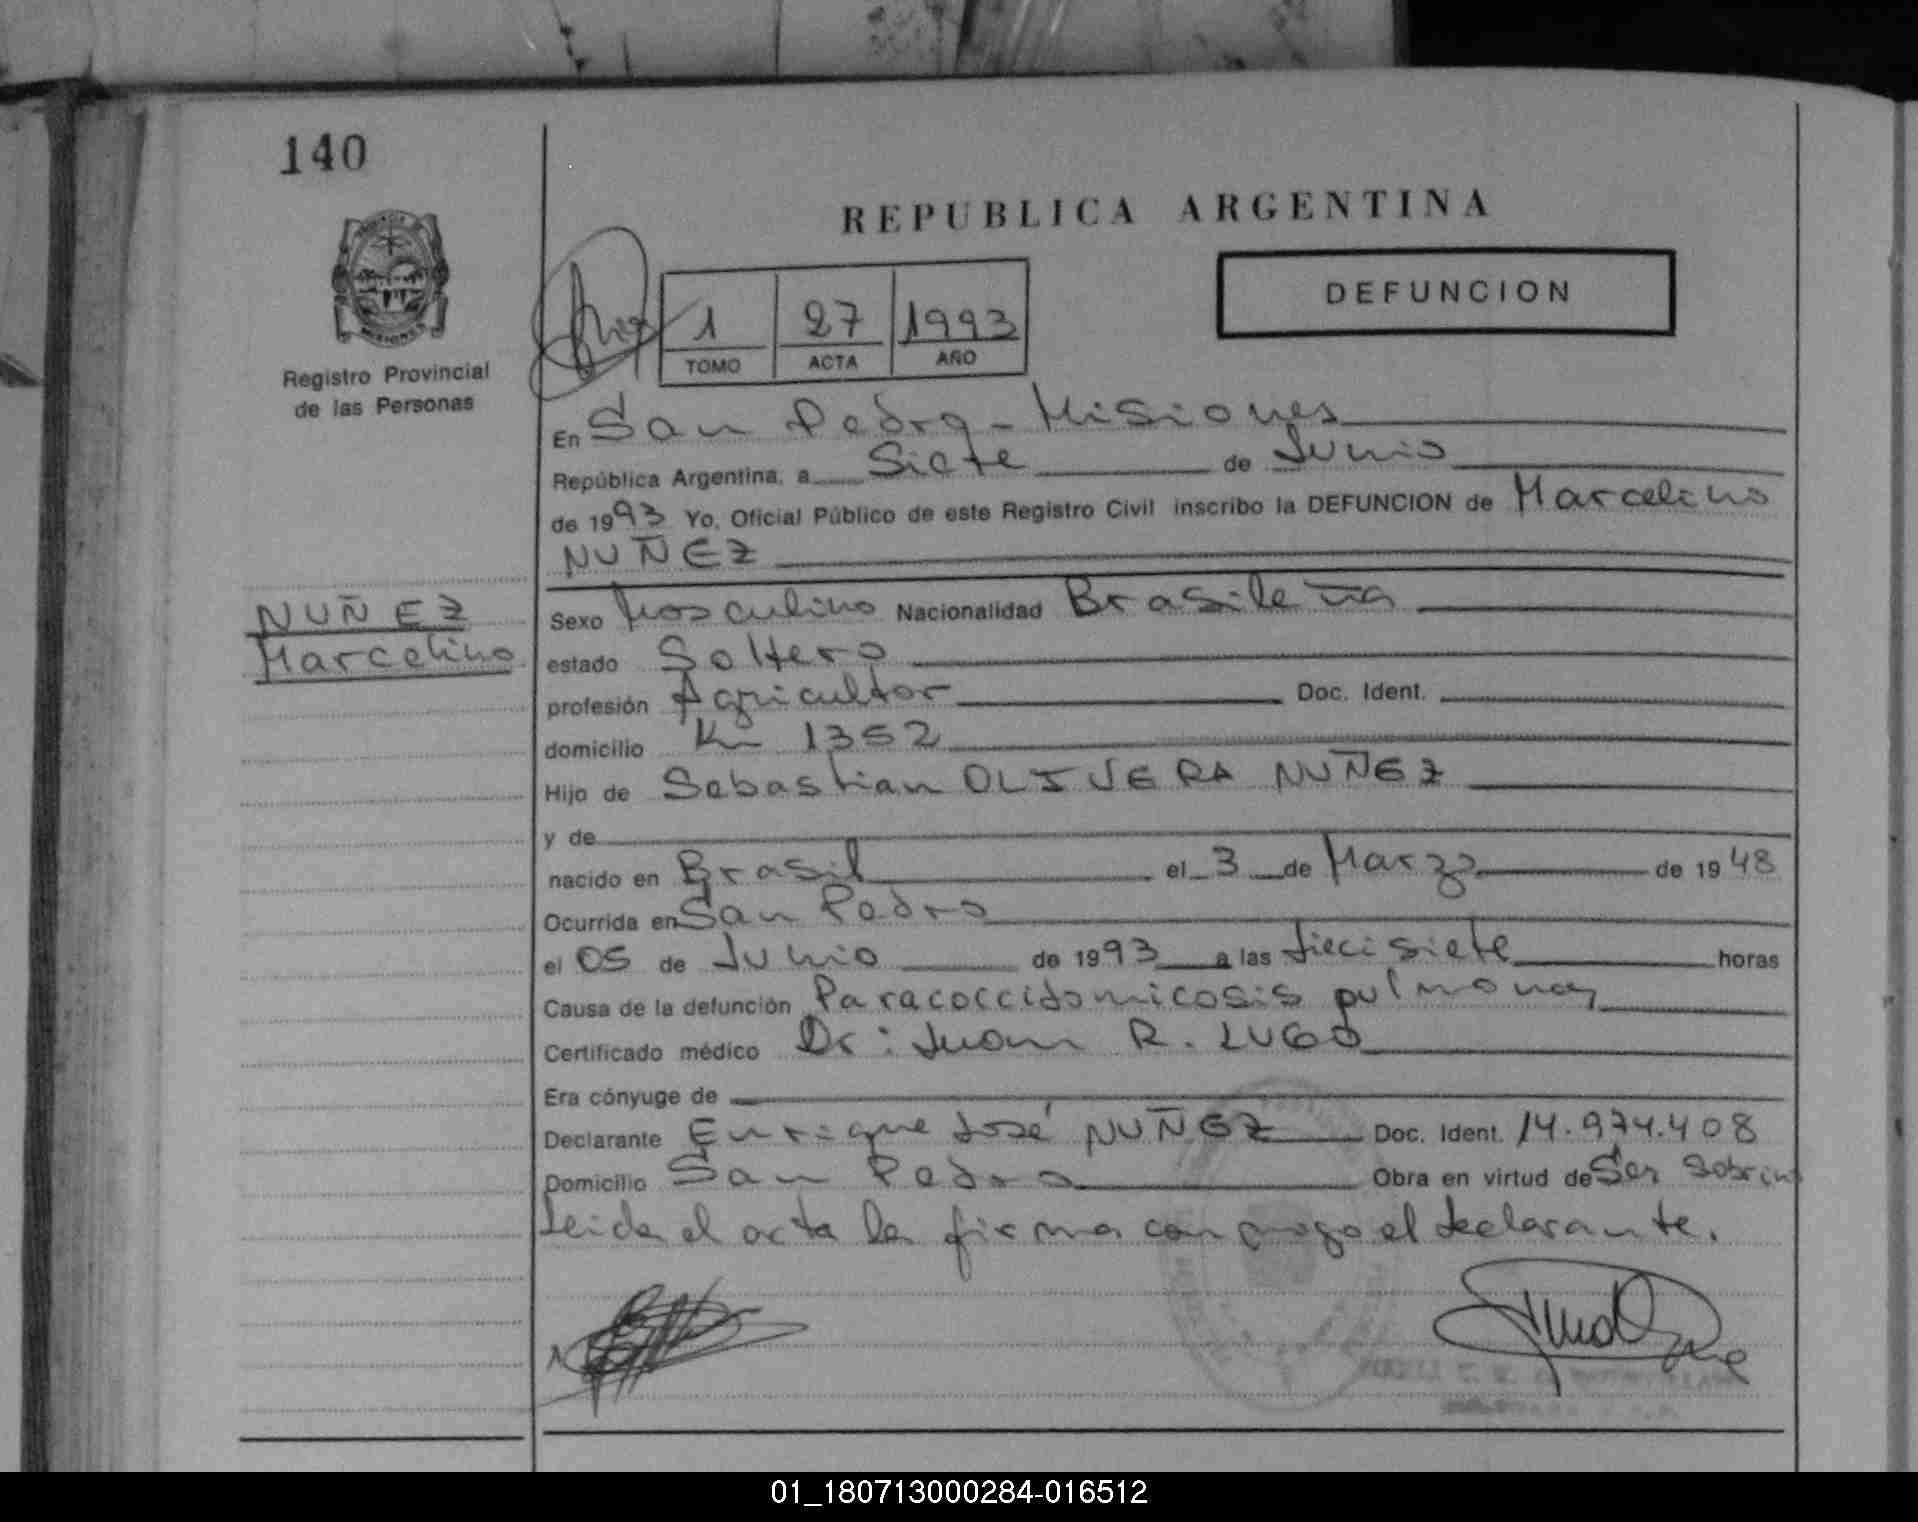 140
REPUBLICA ARGENTINA
DEFUNCION
1 27 1993
TOMO ACTA AÑO
Registro Provincial
de las Personas
En San Pedro - Misiones
República Argentina, a Siete de Junio
de 1993 Yo, Oficial Público de este Registro Civil inscribo la DEFUNCION de Marcelino
NUÑEZ
NUÑEZ
Marcelino
Sexo Masculino Nacionalidad Brasileña
estado Soltero
profesión Agricultor Doc. Ident.
domicilio Km 1352
Hijo de Sebastian OLIVERA NUÑEZ
y de
nacido en Brasil el 3 de Marzo de 1948
Ocurrida en San Pedro
el 05 de Junio de 1993 a las diecisiete horas
Causa de la defunción Paracoccidomicosis pulmonar
Certificado médico Dr: Juan R. LUGO
Era cónyuge de
Declarante Enrique José NUÑEZ Doc. Ident. 14.974.408
Domicilio San Pedro Obra en virtud de Ser Sobrino
Leida el acta la firma conmigo el declarante.
01_180713000284-016512